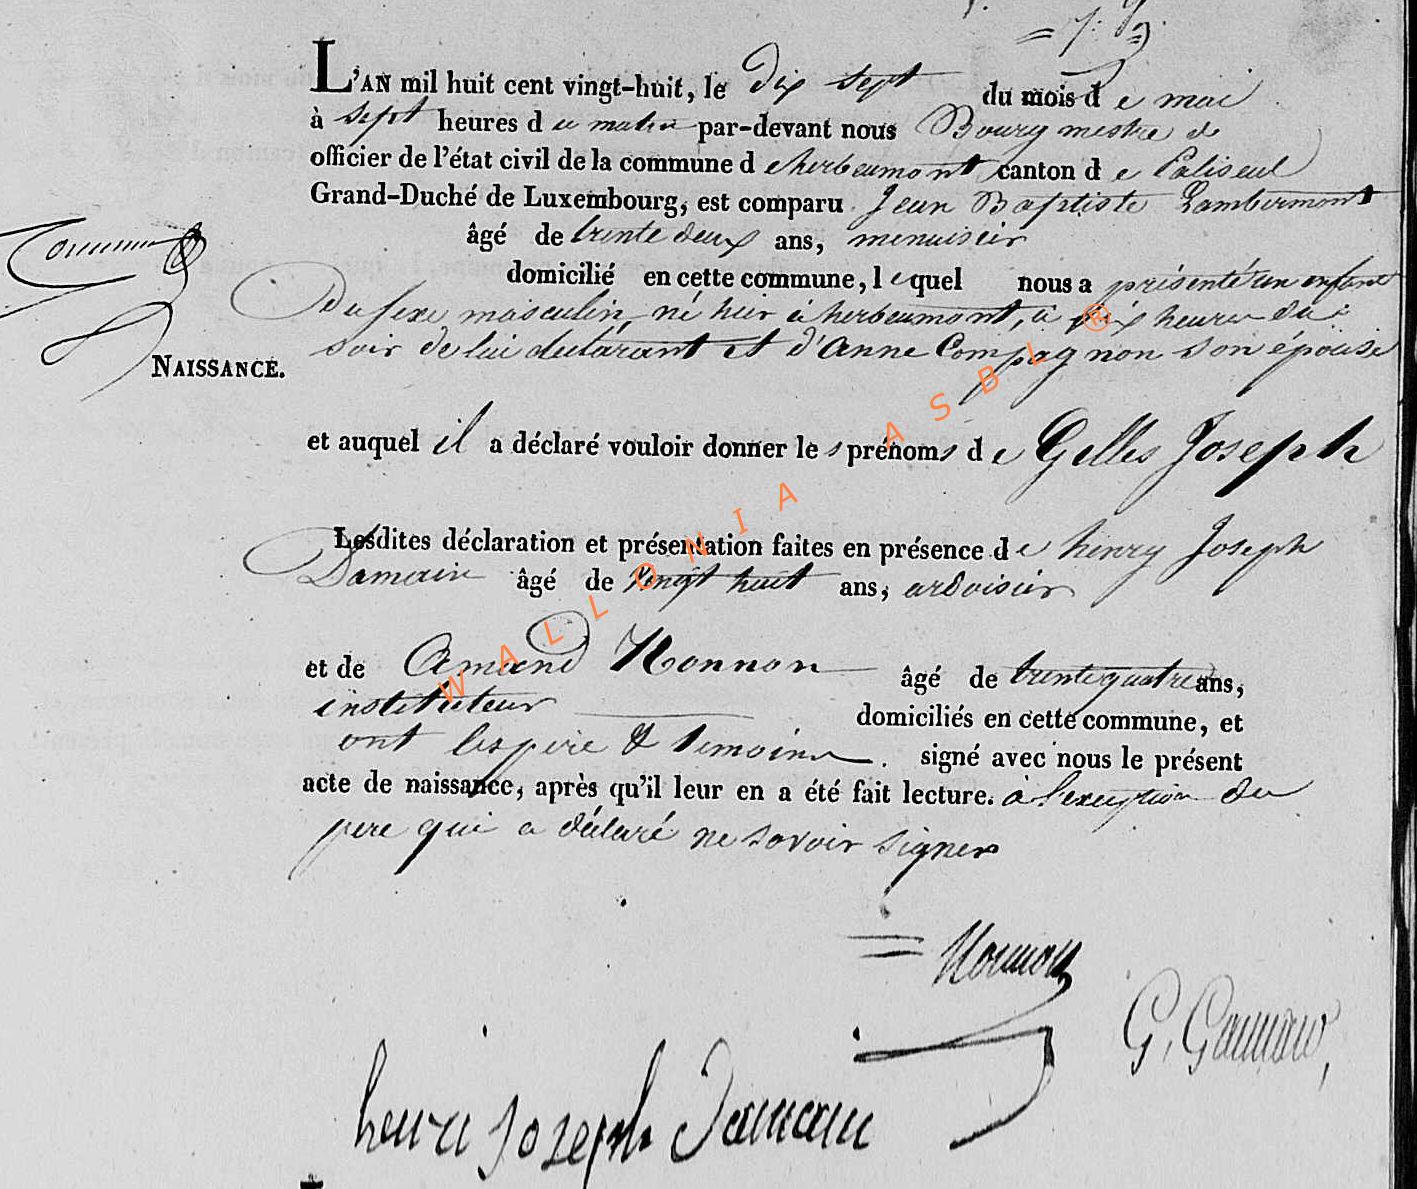 = 7. =
L'AN mil huit cent vingt-huit, le Dix sept du mois d e mai
à sept heures d u matin par-devant nous Bourgmestre &
officier de l'état civil de la commune d e herbeumont canton d e Paliseul
Grand-Duché de Luxembourg, est comparu Jean Baptiste Lambermont
âgé de trente deux ans, menuisier
domicilié en cette commune, l e quel nous a présenté un enfant
Du sexe masculin né hier à herbeumont, à heures du
soir de lui déclarant et d'Anne Compagnon son épouse
NAISSANCE.
et auquel il a déclaré vouloir donner le s prénoms d e Gelles Joseph
Lesdites déclaration et présentation faites en présence d e henry Joseph
Damain âgé de vingt huit ans, ardoisier
et de Amand Nonnon âgé de trente quatre ans,
instituteur domiciliés en cette commune, et
ont les pere & temoins. signé avec nous le présent
acte de naissance, après qu'il leur en a été fait lecture. à l'exception du
pere qui a déclaré ne savoir signer
= Nonnon
G. Gannaw,
henri joseph Damain
WALLONIA ASBL ®